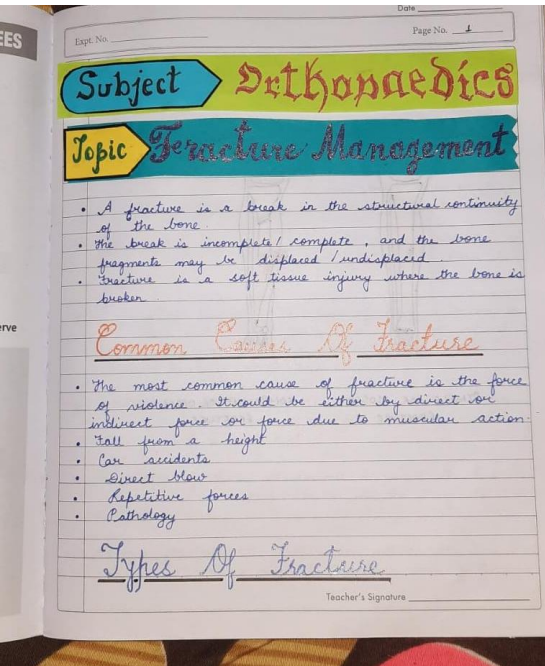 EES
Date
Expt. No.
Page No. 1
Subject
Orthopaedics
Topic
Feracture Management
• A fracture is a break in the structural continuity
of the bone.
• The break is incomplete/complete, and the bone
fragments may be displaced/undisplaced.
• Fracture is a soft tissue injury where the bone is
broken.
Common Causes Of Fracture
• The most common cause of fracture is the force
of violence. It could be either by direct or
indirect force or force due to muscular action.
• Fall from a height
• Car accidents
• Direct blow
• Repetitive forces
• Pathology
Types Of Fracture
Teacher's Signature
erve